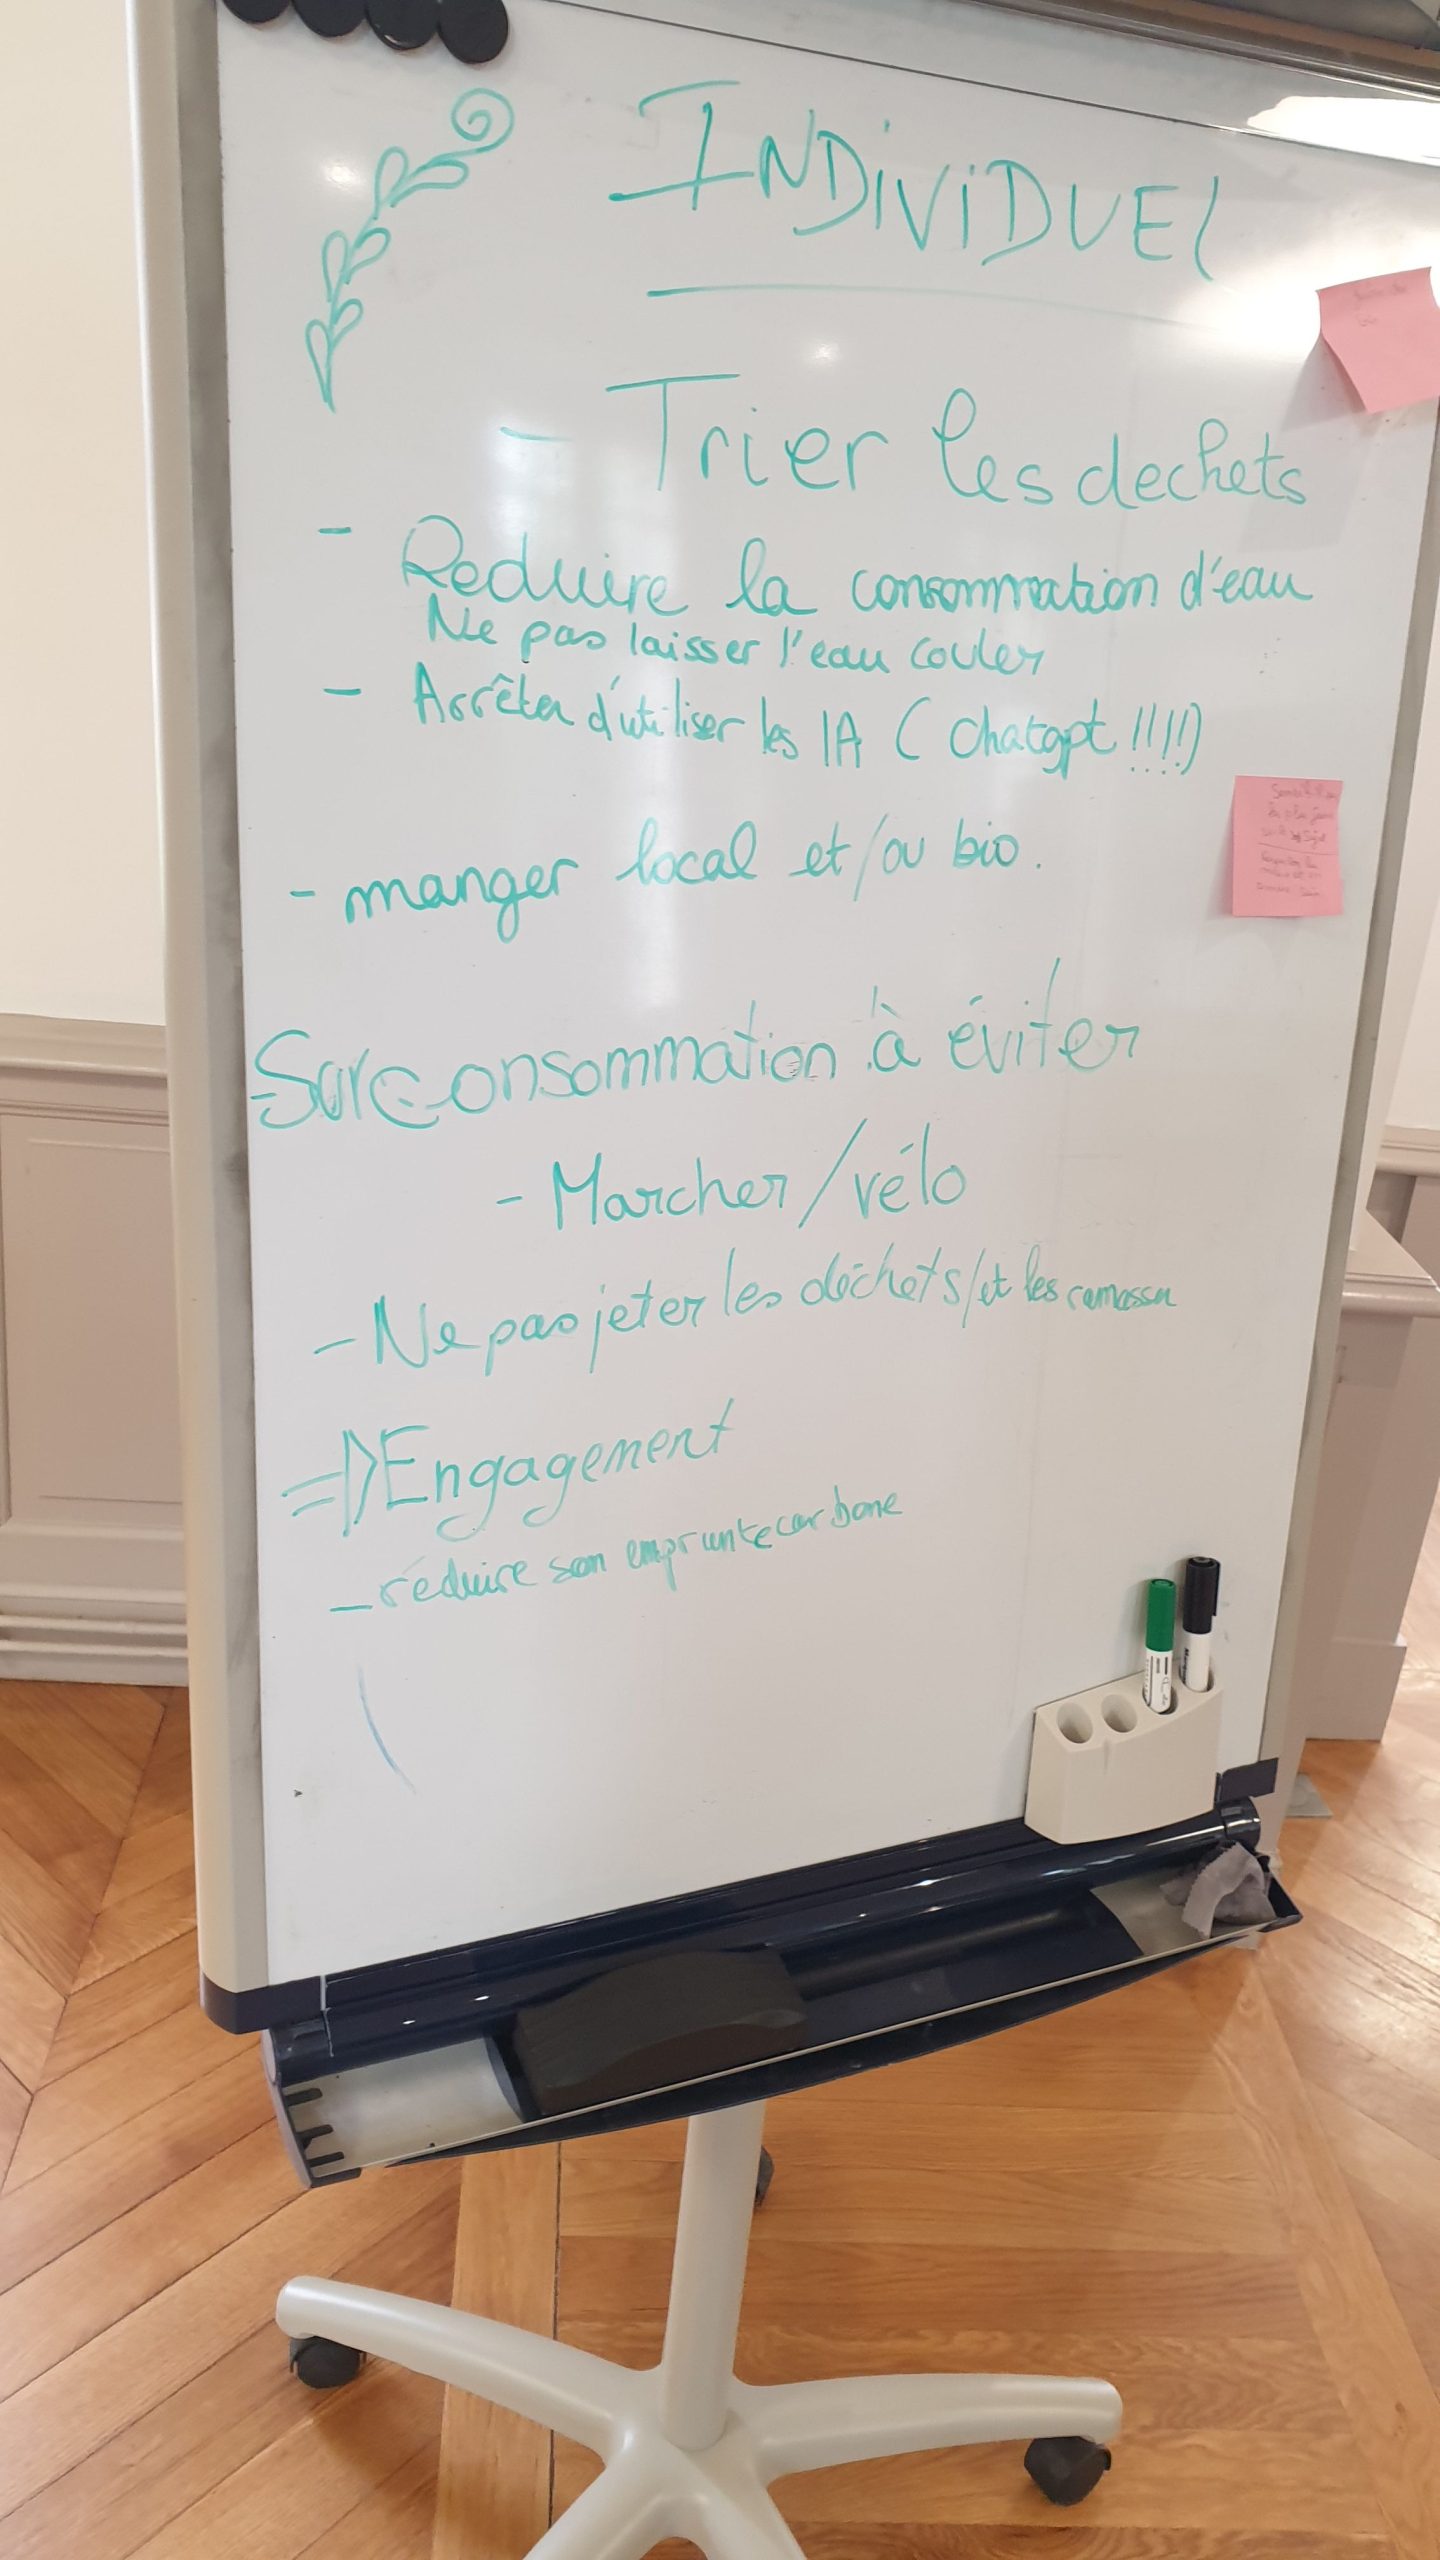 INDiViDUEl
- Trier les dechets
- Reduire la consommation d'eau
Ne pas laisser l'eau couler
- Arrêter d'utiliser les IA ( Chatgpt !!!!)
- manger local et/ou bio.
- Surconsommation à éviter
- Marcher/vélo
- Ne pas jeter les déchets/et les ramasser
=> Engagement
- réduire son emprunte carbone